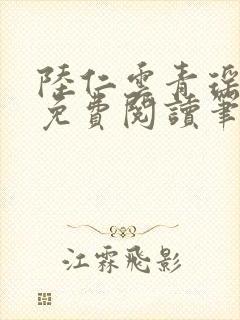 陸仁雲青瑤
免費閱讀筆
江霖飛影